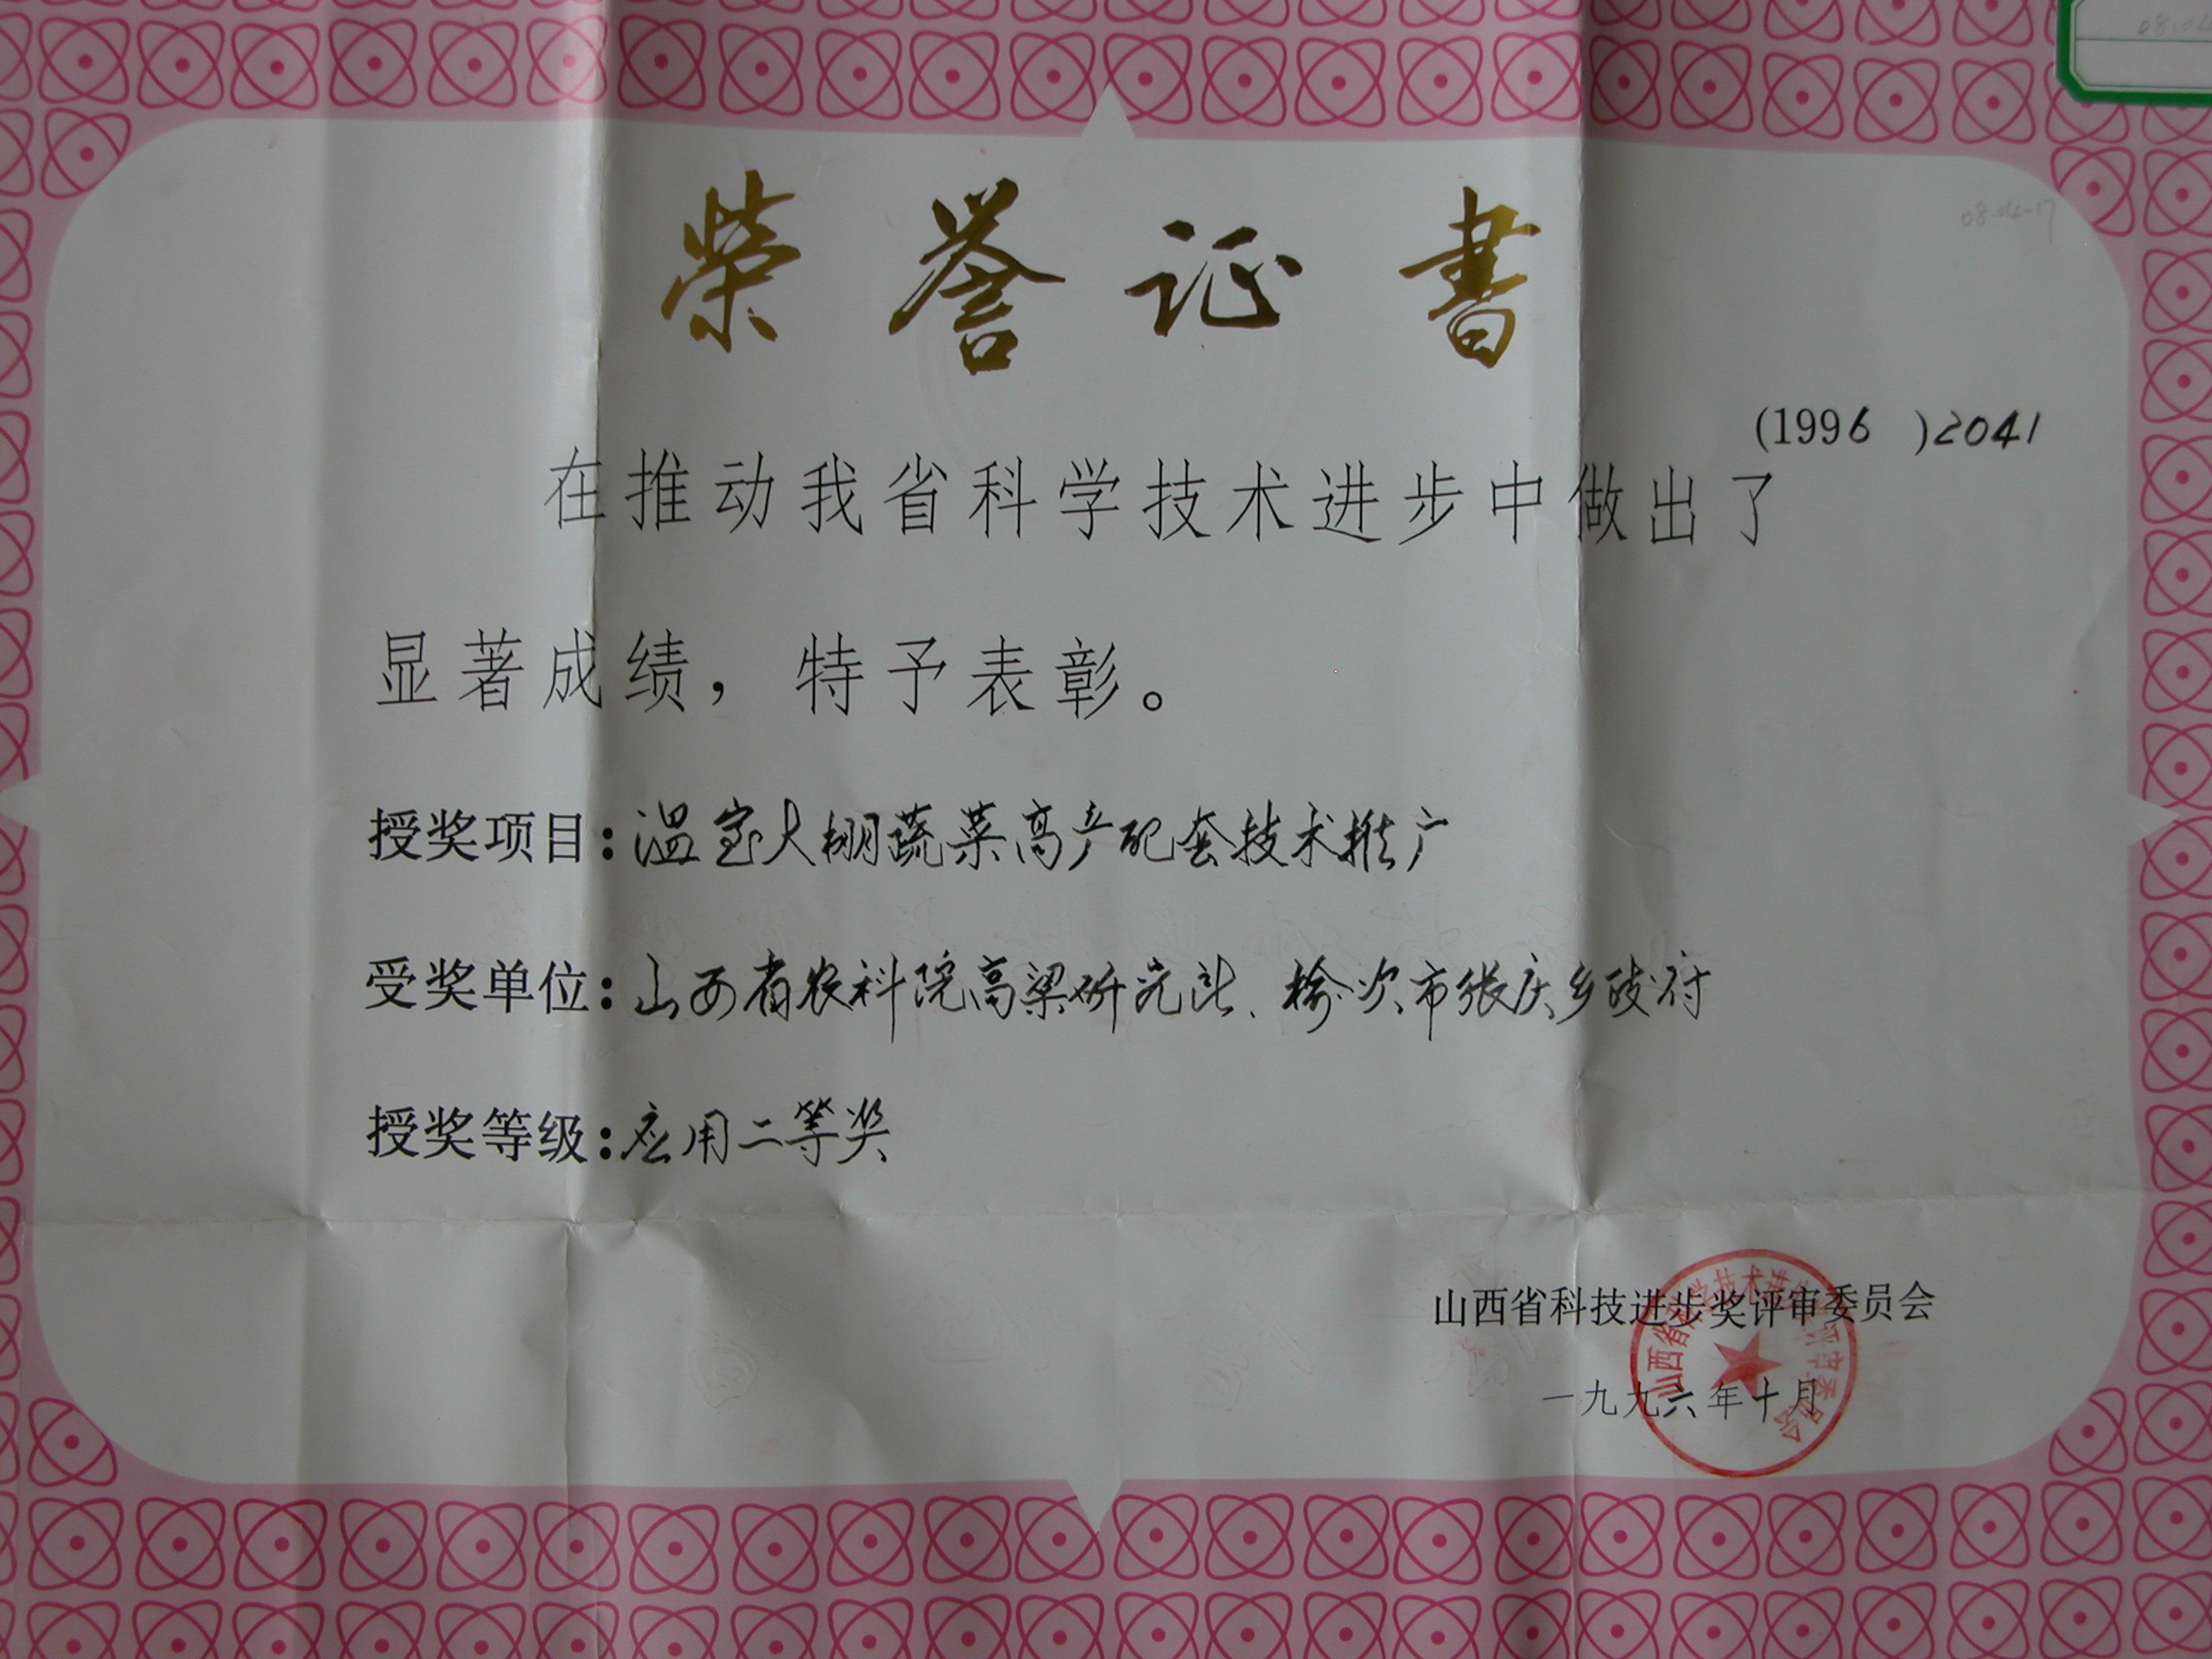 08.0
荣誉证書
08-04-17
(1996 )2041
在推动我省科学技术进步中做出了
显著成绩，特予表彰。
授奖项目:温室大棚蔬菜高产配套技术推广
受奖单位:山西省农科院高粱研究所、榆次市张庆乡政府
授奖等级:应用二等奖
山西省科技进步奖评审委员会
一九九六年十月
山西省科学技术进步奖评审委员会